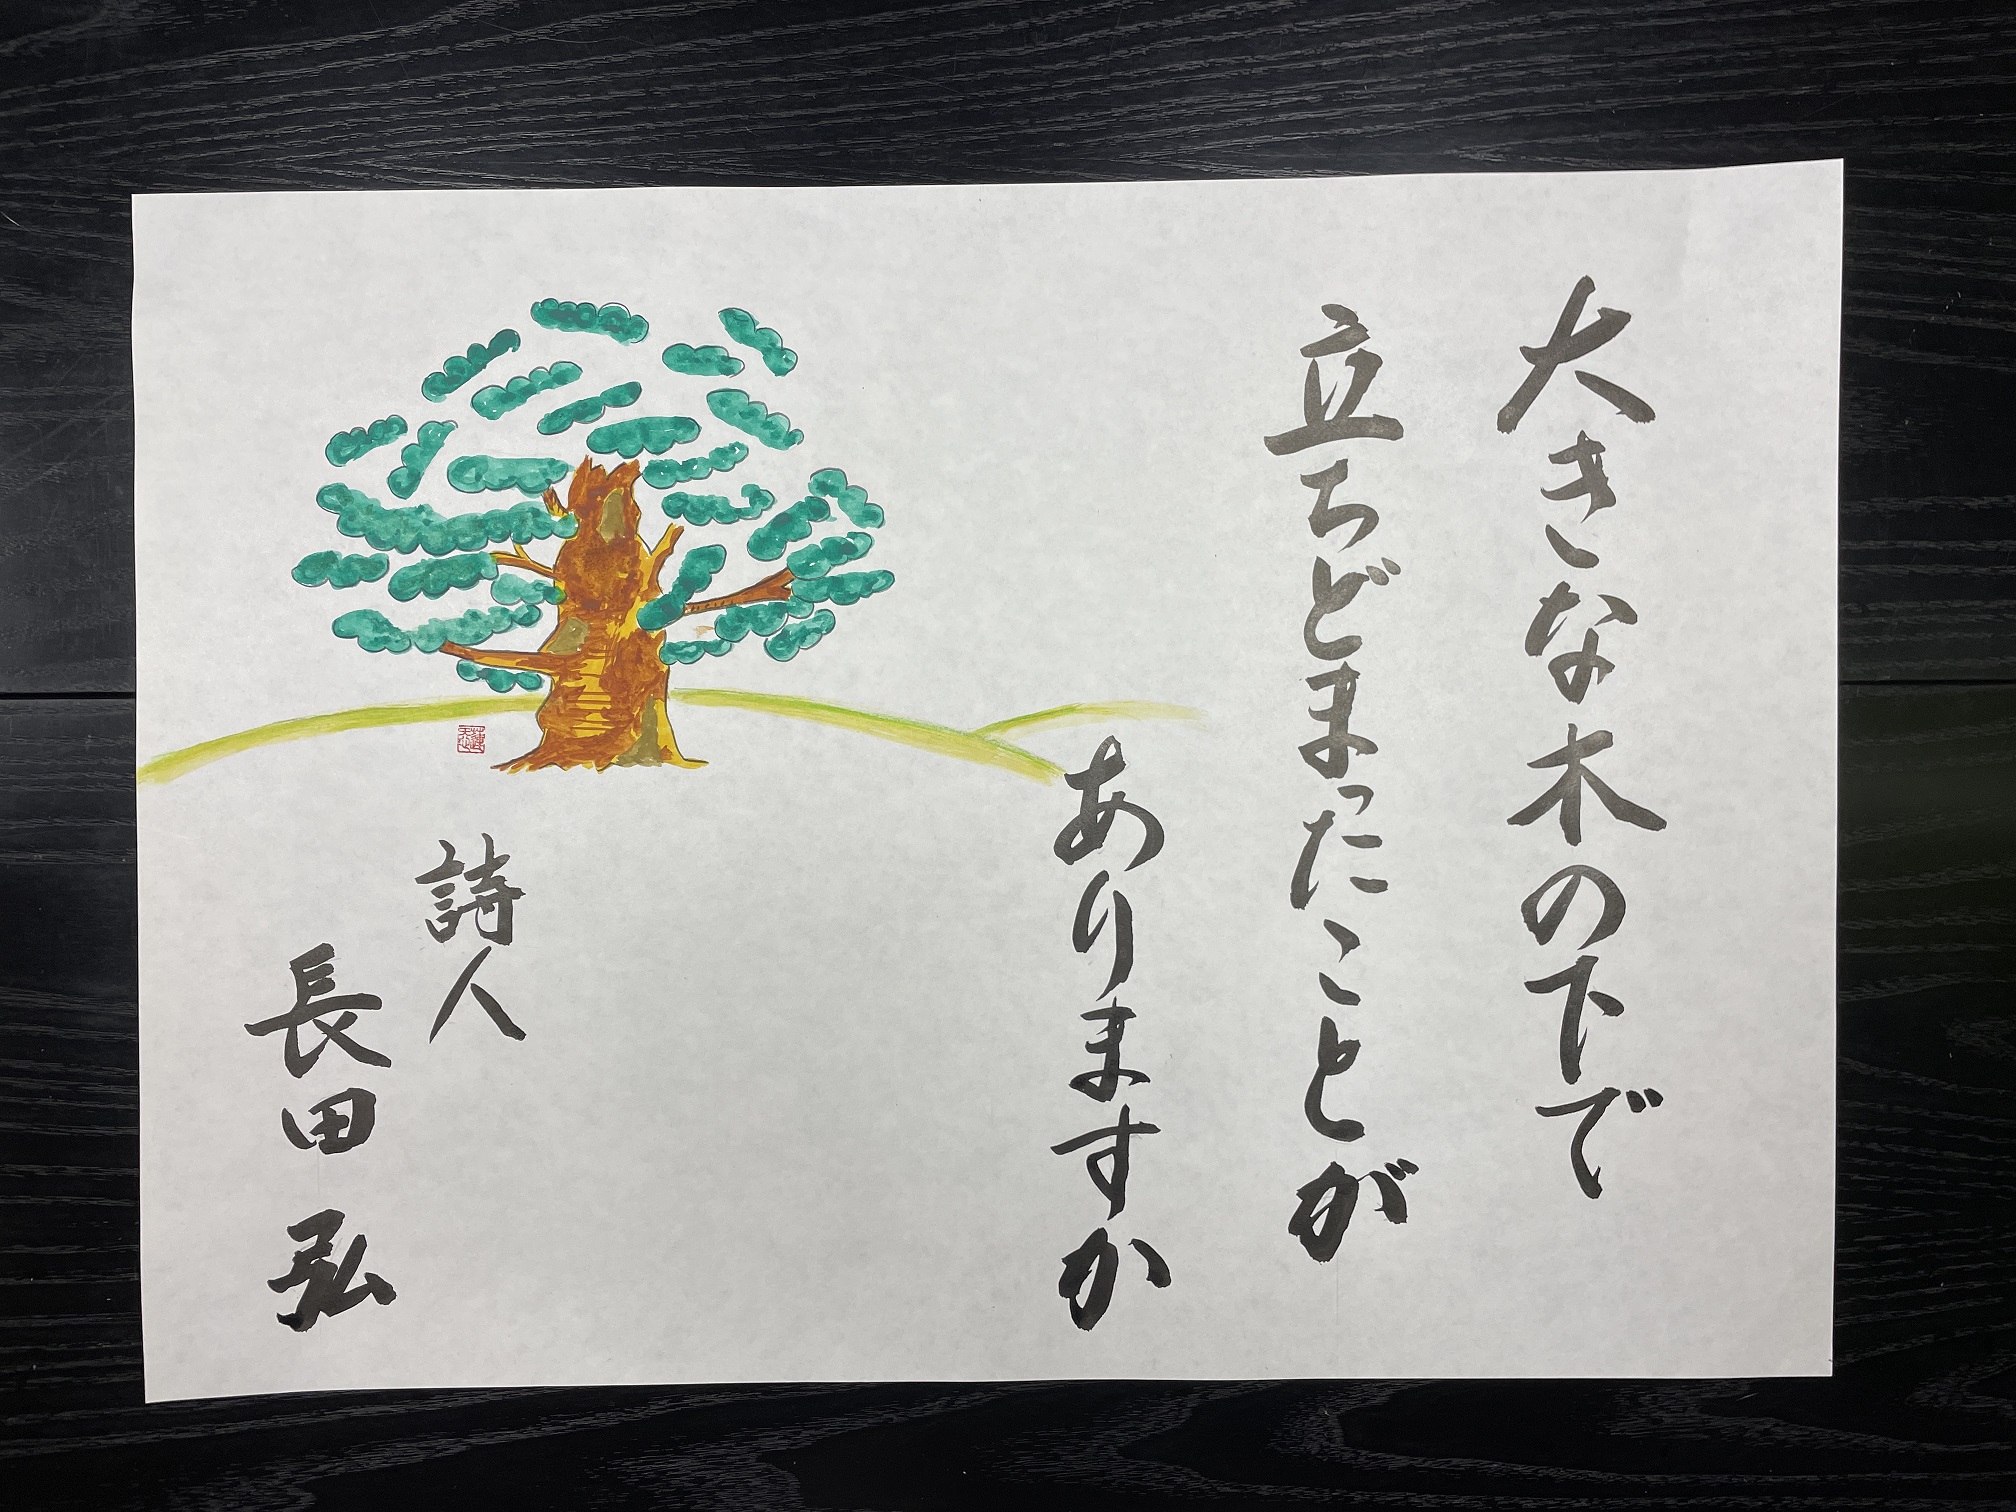 大きな木の下で
立ちどまったことが
ありますか
詩人
長田弘